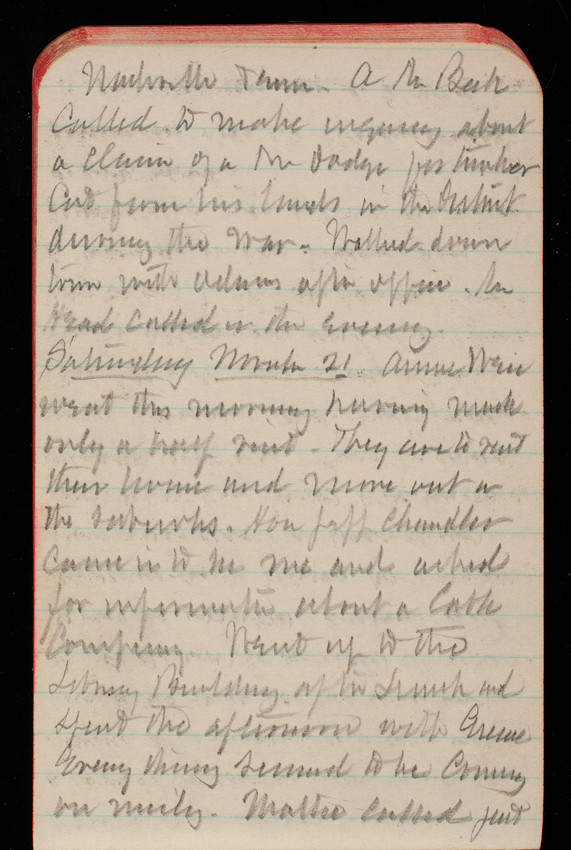 Nashville Tenn. A Mr Beck
Called to make inquiry about
a Claim of a Mr Dodge for timber
Cut from his lands in the District
during the War. Walked down
town with Adams after office. Mr
Head Called in the Evening.
Saturday March 21. Annie Weir
went this morning having made
only a brief visit. They are to rent
their home and move out in
the suburbs. Hon Jeff Chandler
Came in to see me and asked
for information about a Cable
Company. Went up to the
Library Building after Lunch and
spent the afternoon with Greene
Every thing seemed to be Coming
on nicely. Mattie Called just